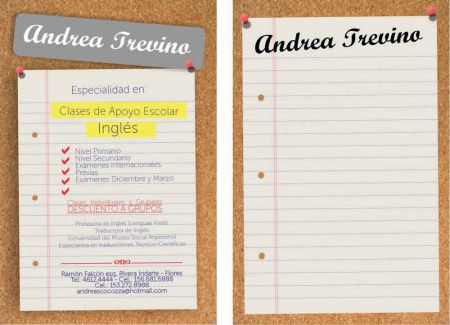 Andrea Trevino
Especialidad en:
Clases de Apoyo Escolar
Inglés
Nivel Primario
Nivel Secundario
Exámenes Internacionales
Previas
Exámenes Diciembre y Marzo
Clases Individuales y Grupales
DESCUENTO A GRUPOS
Profesora de Inglés (Lenguas Vivas)
Traductora de Inglés
(Universidad del Museo Social Argentino)
Especialista en traducciones Técnico-Científicas
Ramón Falcón esq. Rivera Indarte - Flores
Tel: 4612.4444 - Cel: 156.681.6888
Cel: 153.272.8988
andreascocozza@hotmail.com
Andrea Trevino